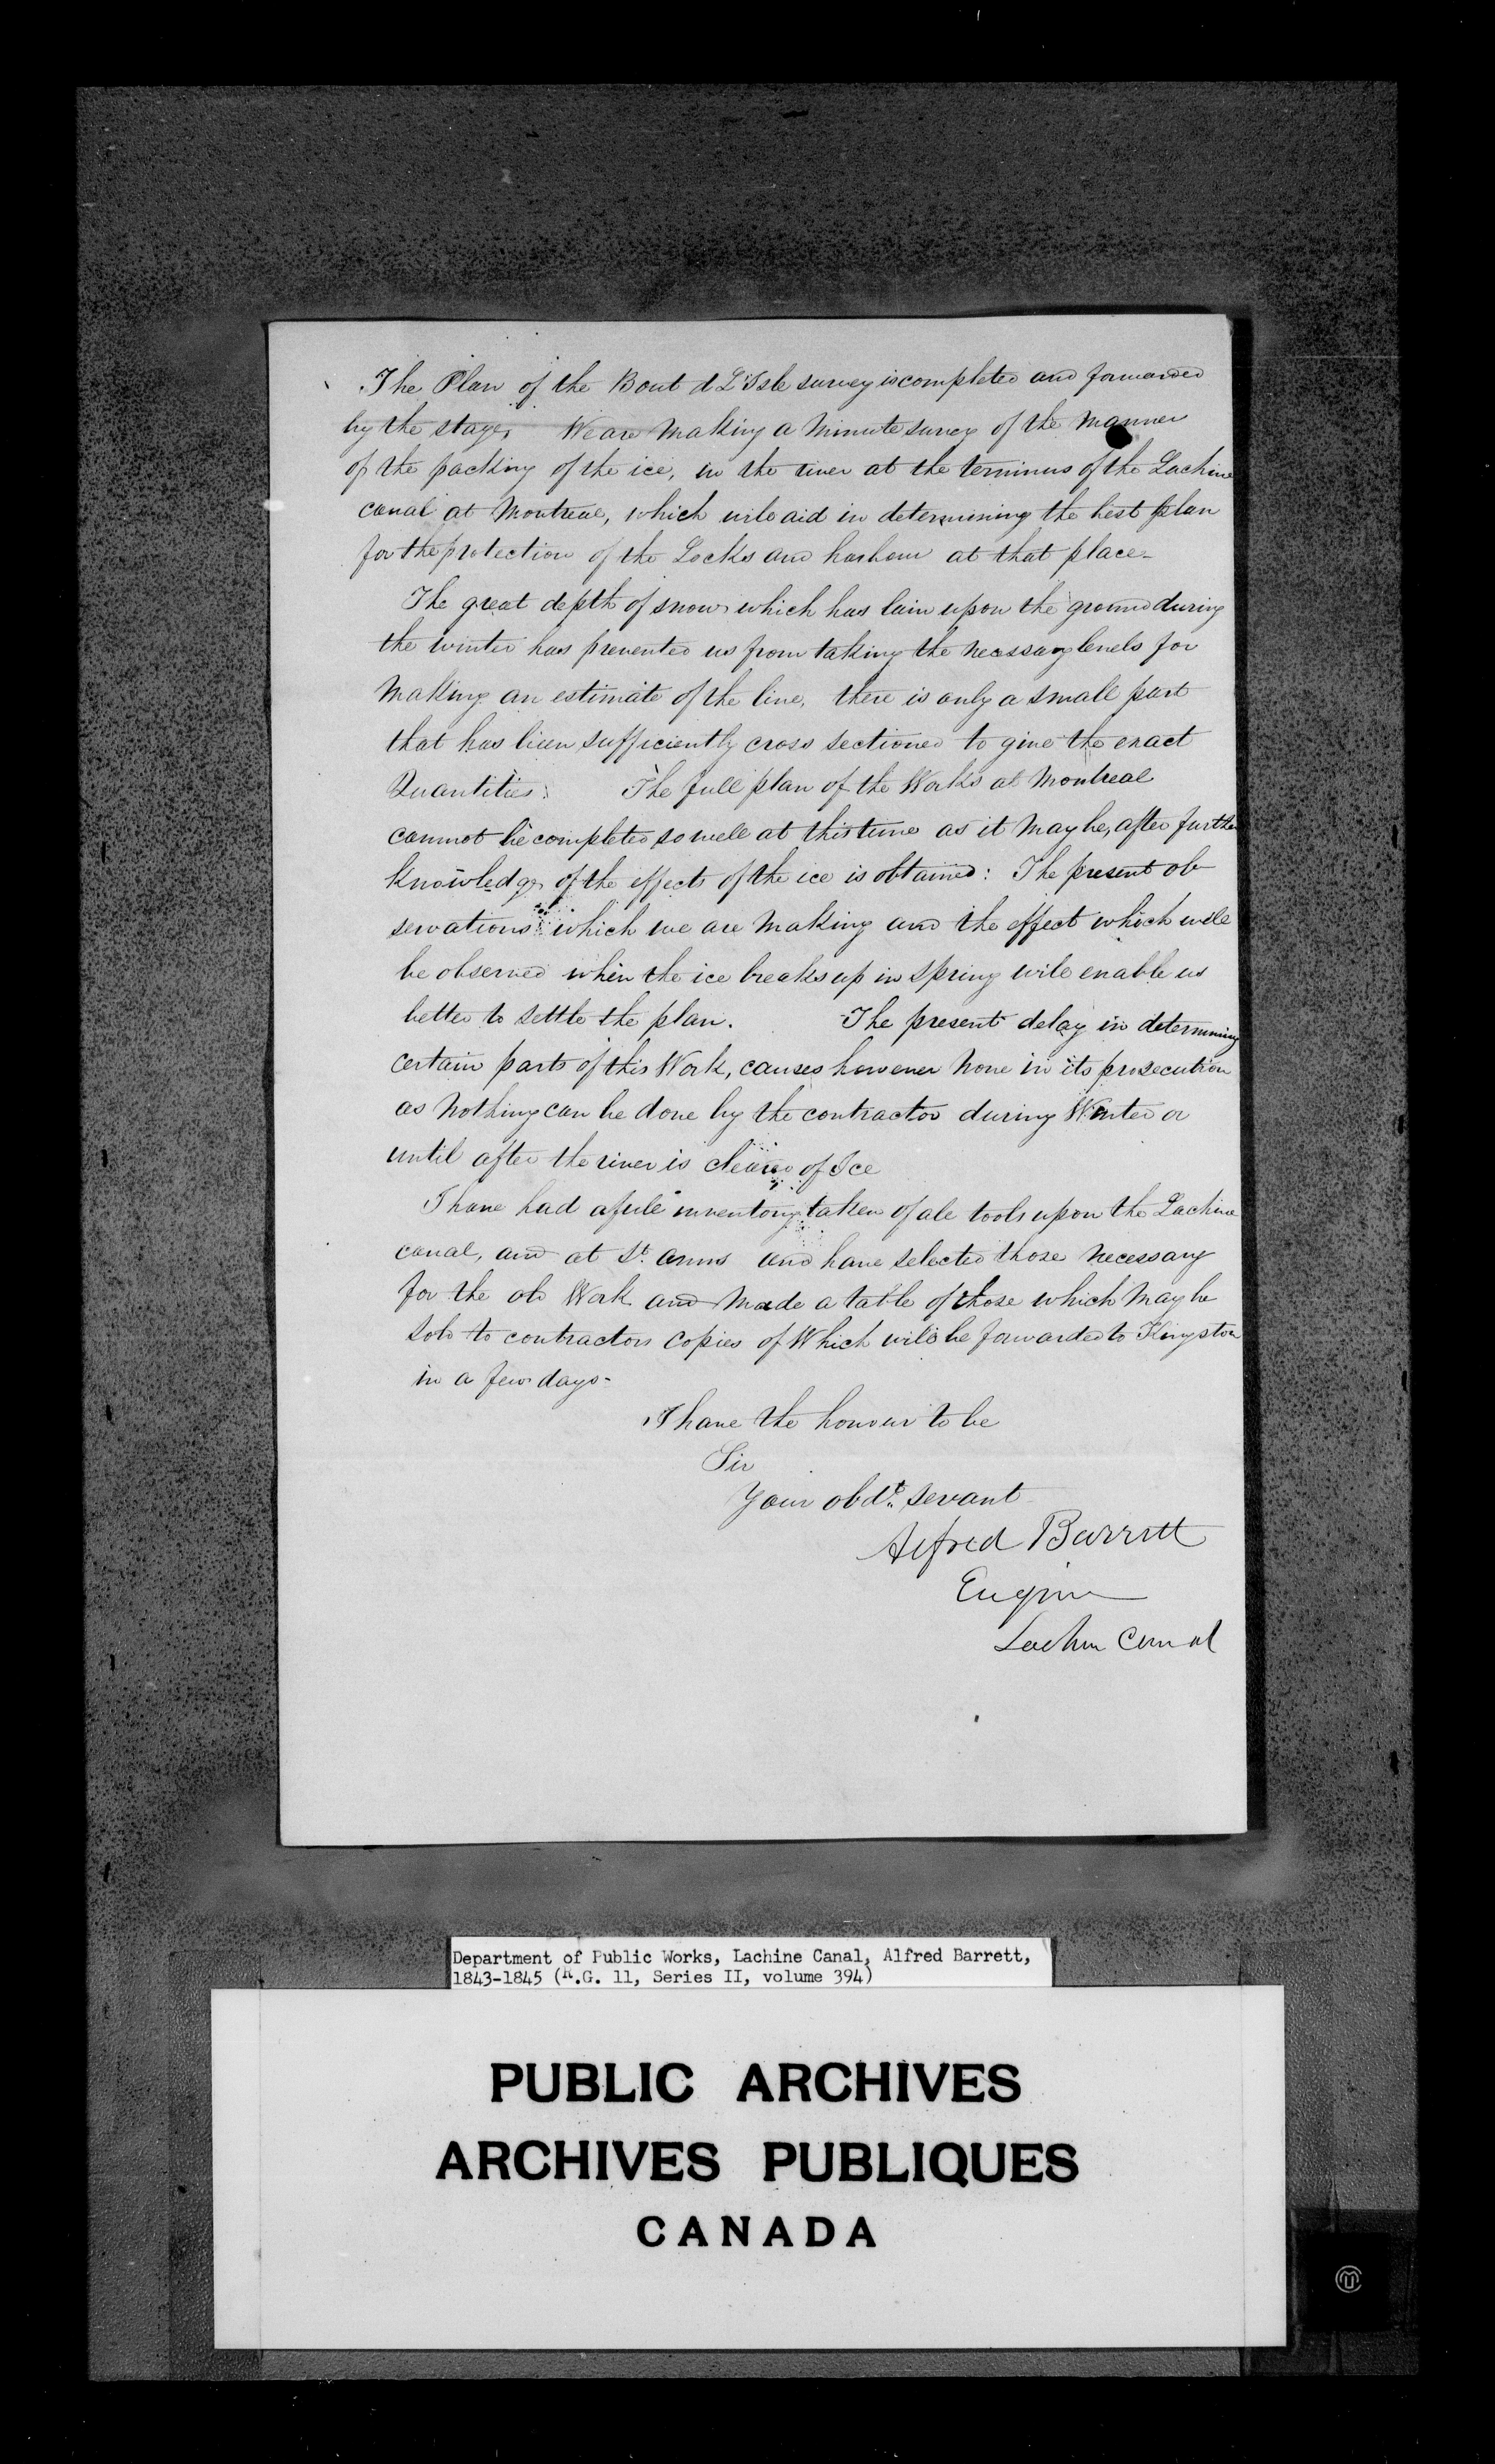 The Plan of the Bout d L'Isle survey is completed and forwarded
by the stage, We are Making a Minute survey of the Manner
of the packing of the ice, in the river at the terminus of the Lachine
canal at Montreal, which will aid in determining the best plan
for the protection of the Locks and harbour at that place-
The great depth of snow which has lain upon the ground during
the winter has prevented us from taking the necessary levels for
Making an estimate of the line, there is only a small part
that has been sufficiently cross sectioned to give the exact
Quantities: The full plan of the Works at Montreal
cannot be completed so well at this time as it May be, after further
Knowledge of the effects of the ice is obtained: The present ob
servations which we are Making and the effect which will
be observed when the ice breaks up in Spring will enable us
better to settle the plan. The present delay in determining
certain parts of this Work, causes however None in its prosecution
as Nothing can be done by the contractor during Winter or
until after the river is cleared of Ice
I have had a full inventory taken of all tools upon the Lachine
canal, and at St. Anns and have selected those Necessary
for the old Work and Made a table of those which May be
Sold to contractors Copies of Which will be forwarded to Kingston
in a few days-
I have the honour to be
Sir
Your obdt. servant
Alfred Barrett
Engineer
Lachine Canal
Department of Public Works, Lachine Canal, Alfred Barrett,
1843-1845 (R.G. 11, Series II, volume 394)
PUBLIC ARCHIVES
ARCHIVES PUBLIQUES
CANADA